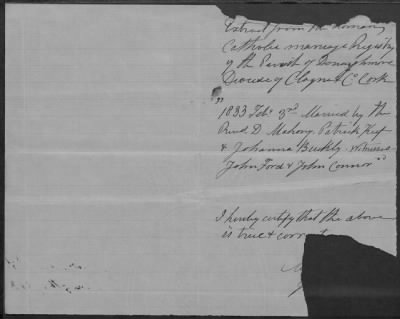 Extract from the Roman
Catholic marriage Registry
of the Parish of Donaghmore
Diocese of Cloyne & Co Cork
"
1833 Feby 3rd Married by the
Revd D. Mahony, Patrick Keef
& Johanna Buckly. Witnesses
John Ford & John Connor "
I hereby certify that the above
is true & correct